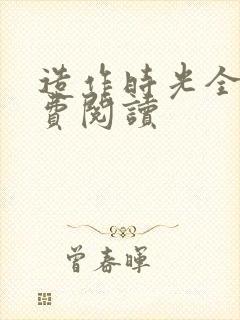 造作時光全
費閱讀
曾春暉